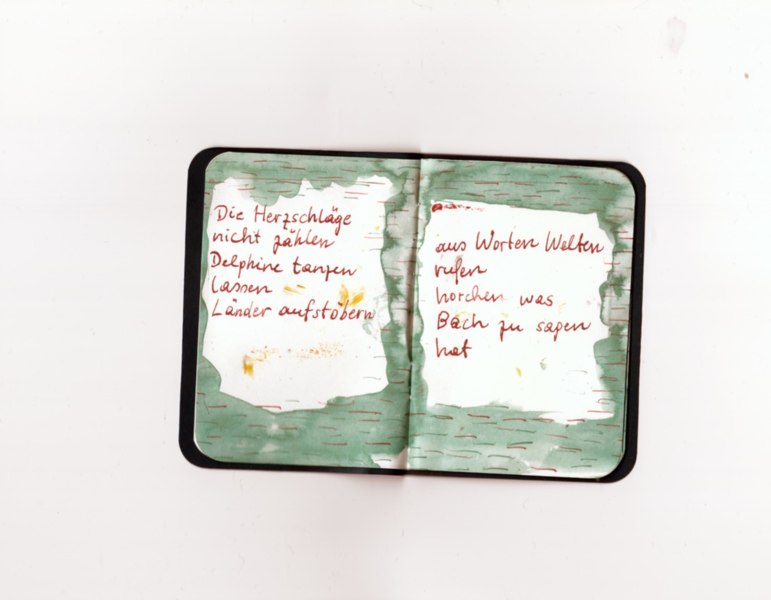 Die Herzschläge
nicht zählen
Delphine tanzen
lassen
Länder aufstöbern
aus Worten Welten
rufen
horchen was
Bach zu sagen
hat